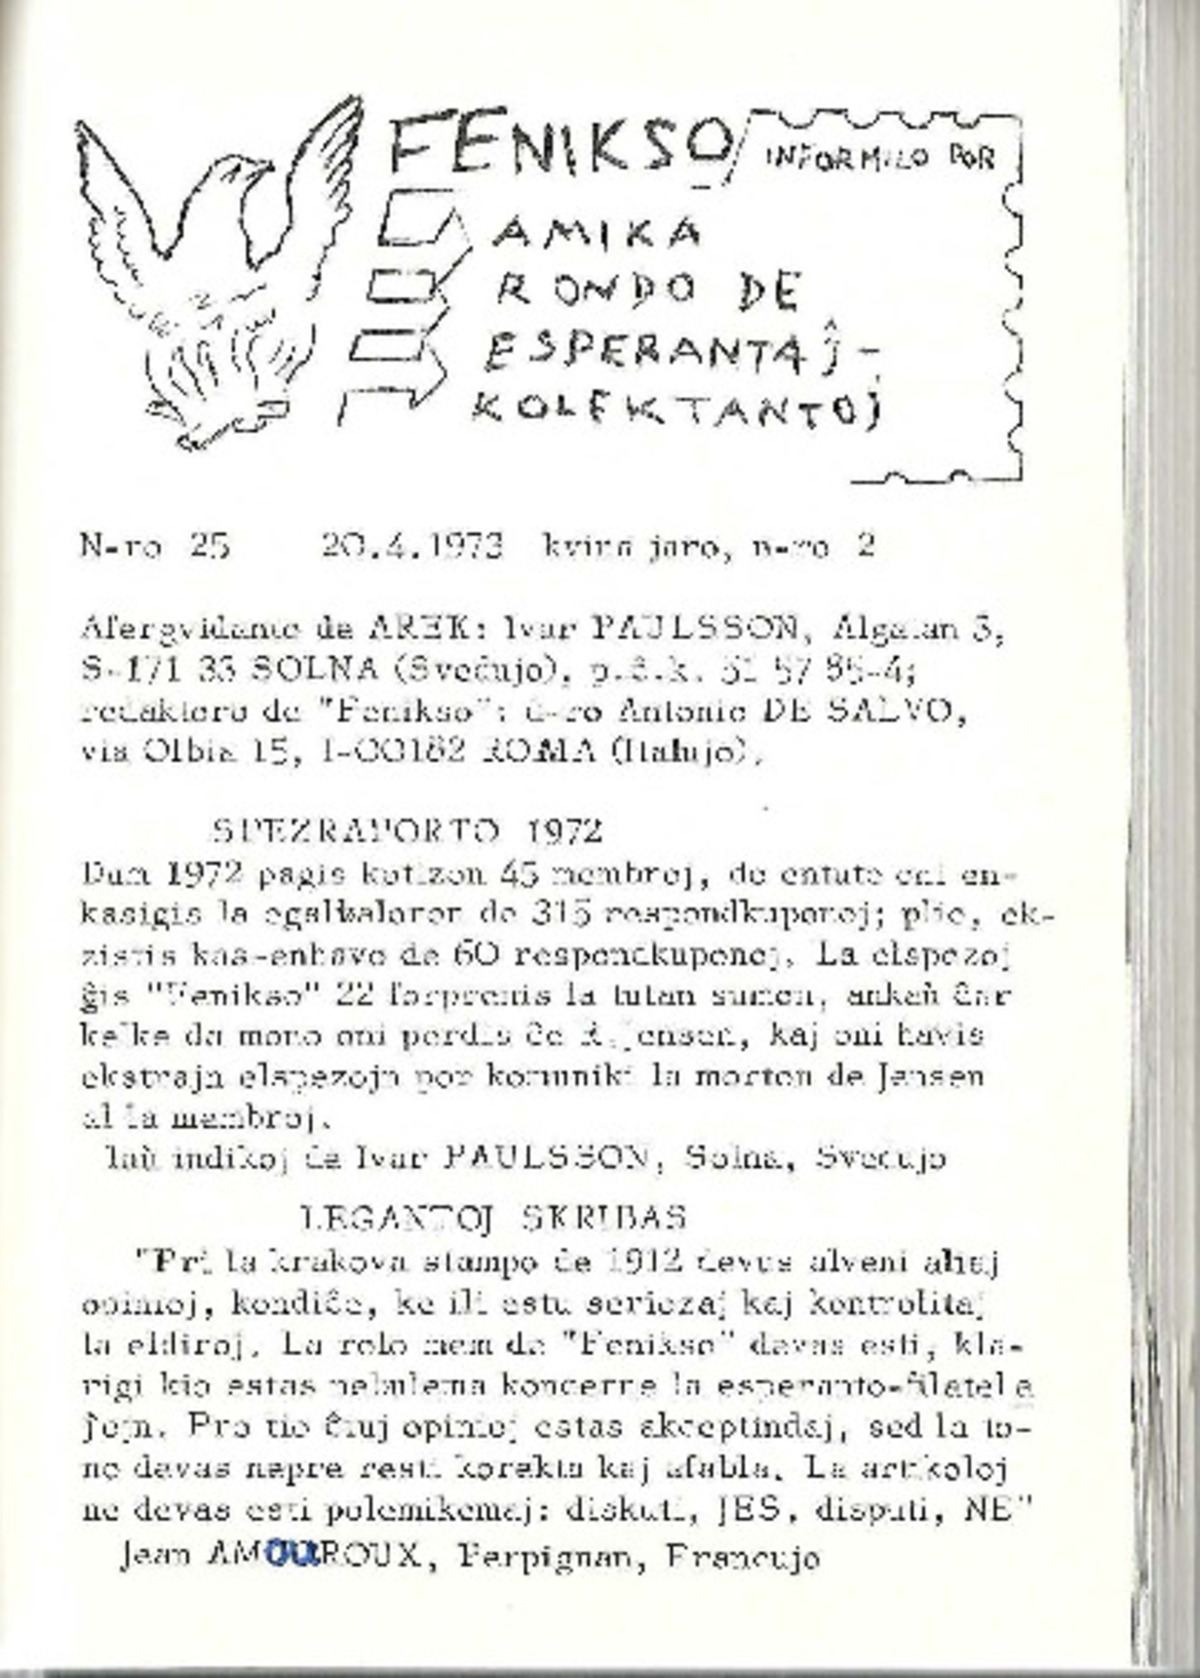 FENIKSO
INFORMILO POR
AMIKA
RONDO DE
ESPERANTAĴ-
KOLEKTANTOJ
N-ro 25 20.4.1973 kvina jaro, n-ro 2
Afergvidanto de AREK: Ivar PAULSSON, Algatan 3,
S-171 33 SOLNA (Svedujo), p.ĉ.k. 51 57 85-4;
redaktoro de "Fenikso": d-ro Antonio DE SALVO,
via Olbia 15, I-00182 ROMA (Italujo).
SPEZRAPORTO 1972
Dum 1972 pagis kotizon 45 membroj, do entute oni en-
kasigis la egalvaloron de 315 respondkuponoj; plie, ek-
zistis kas-enhavo de 60 respondkuponoj. La elspezoj
ĝis "Fenikso" 22 forprenis la tutan sumon, ankaŭ ĉar
kelke da mono oni perdis ĉe R.Jensen, kaj oni havis
ekstrajn elspezojn por komuniki la morton de Jensen
al la membroj.
laŭ indikoj de Ivar PAULSSON, Solna, Svedujo
LEGANTOJ SKRIBAS
"Pri la krakova stampo de 1912 devus alveni aliaj
opinioj, kondiĉe, ke ili estu seriozaj kaj kontrolitaj
la eldiroj. La rolo mem de "Fenikso" devas esti, kla-
rigi kio estas nebulema koncerne la esperanto-filatela
ĵojn. Pro tio ĉiuj opinioj estas akceptindaj, sed la to-
no devas nepre resti korekta kaj afabla. La artikoloj
ne devas esti polemikemaj: diskuti, JES, disputi, NE"
Jean AMOUROUX, Perpignan, Francujo